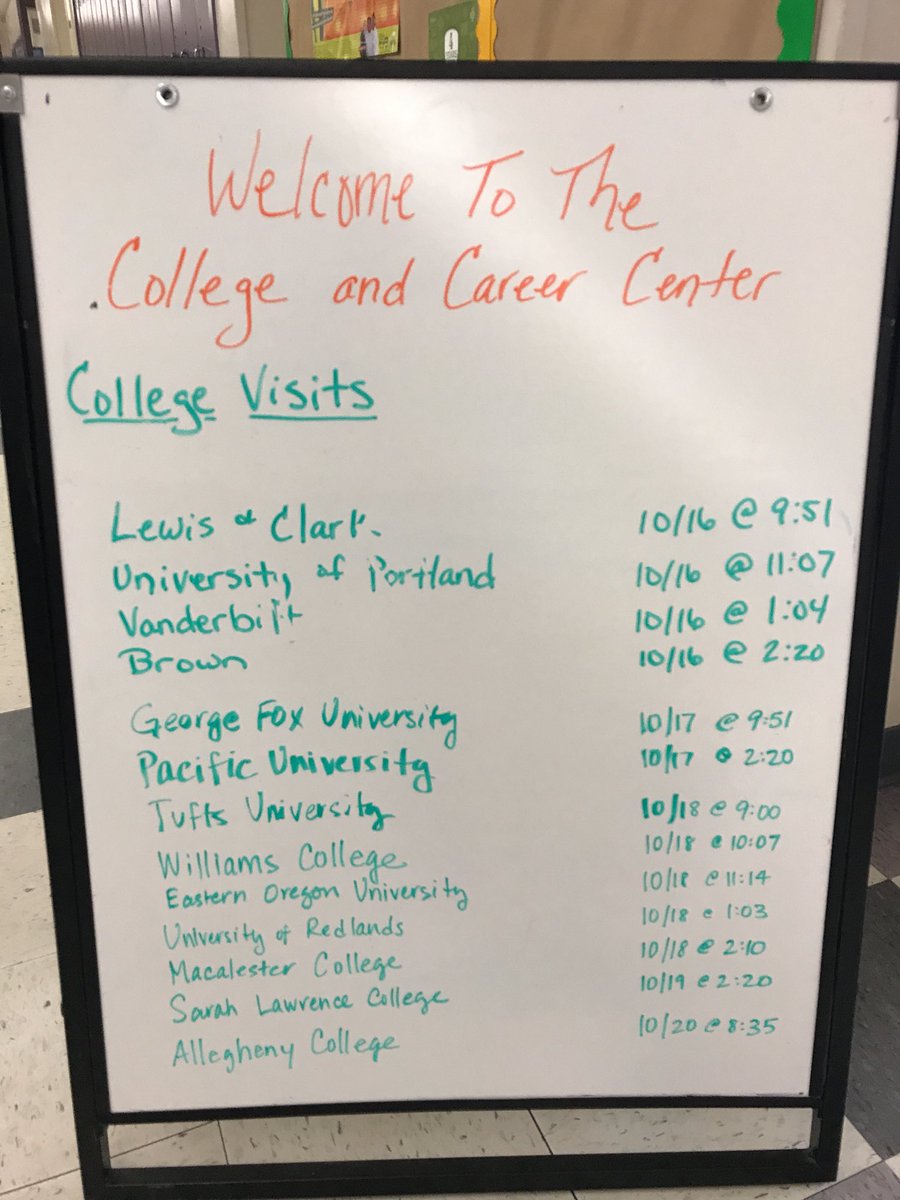 Welcome To The
College and Career Center
College Visits
Lewis & Clark 10/16 @ 9:51
University of Portland 10/16 @ 11:07
Vanderbilt 10/16 @ 1:04
Brown 10/16 @ 2:20
George Fox University 10/17 @ 9:51
Pacific University 10/17 @ 2:20
Tufts University 10/18 @ 9:00
Williams College 10/18 @ 10:07
Eastern Oregon University 10/18 @ 11:14
University of Redlands 10/18 @ 1:03
Macalester College 10/18 @ 2:10
Sarah Lawrence College 10/19 @ 2:20
Allegheny College 10/20 @ 8:35